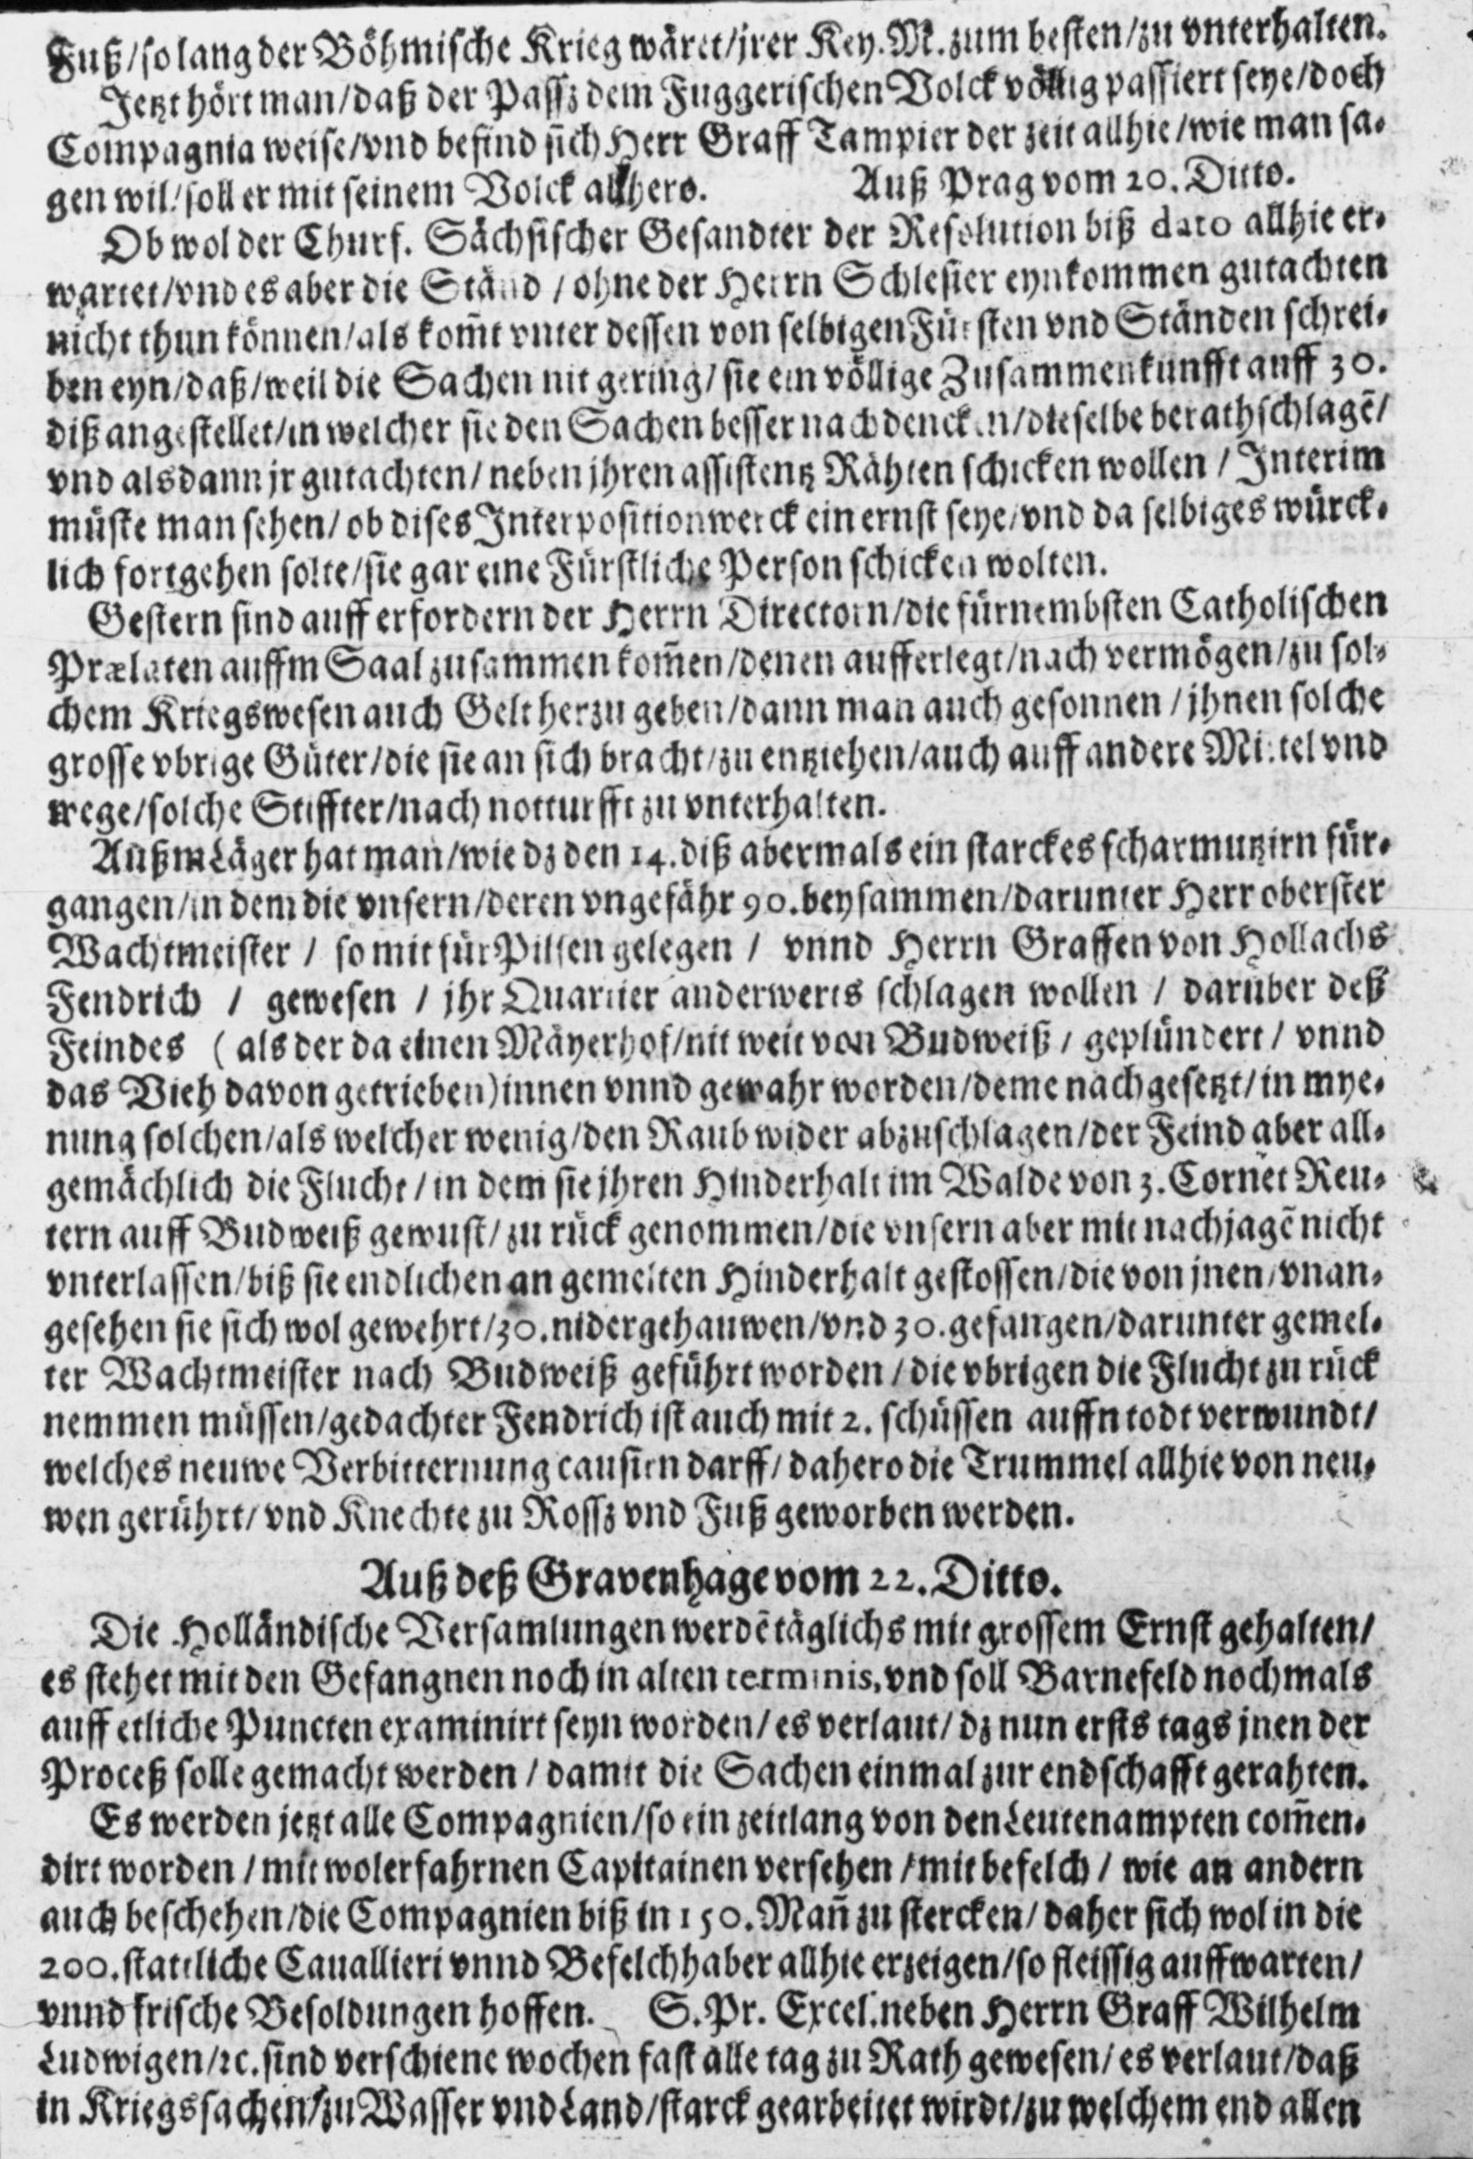 Fuß/so lang der Böhmische Krieg wäret/jrer Key. M. zum besten/zu vnterhalten.
Jetzt hört man/daß der Passz dem Fuggerischen Volck völlig passiert seye/doch
Compagnia weise/vnd befind sich Herr Graff Tampier der zeit allhie/wie man sa-
gen wil/soll er mit seinem Volck allhero. Auß Prag vom 20. Ditto.
Ob wol der Churf. Sächsischer Gesandter der Resolution biß dato allhie er-
wartet/vnd es aber die Ständ/ohne der Herrn Schlesier eynkommen gutachten
nicht thun können/als kom̃t vnter dessen von selbigen Fürsten vnd Ständen schrei-
ben eyn/daß/weil die Sachen nit gering/sie ein völlige Zusammenkunfft auff 30.
diß angestellet/in welcher sie den Sachen besser nachdencken/dieselbe berathschlagẽ/
vnd alsdann jr gutachten/neben jhren assistentz Rähten schicken wollen/Interim
müste man sehen/ob dises Interpositionwerck ein ernst seye/vnd da selbiges würck-
lich fortgehen solte/sie gar eine Fürstliche Person schicken wolten.
Gestern sind auff erfordern der Herrn Directorn/die fürnembsten Catholischen
Prælaten auffm Saal zusammen kom̃en/denen aufferlegt/nach vermögen/zu sol-
chem Kriegswesen auch Gelt herzu geben/dann man auch gesonnen/jhnen solche
grosse vbrige Güter/die sie an sich bracht/zu entziehen/auch auff andere Mittel vnd
wege/solche Stiffter/nach notturfft zu vnterhalten.
Außm Läger hat man/wie dz den 14. diß abermals ein starckes scharmutzirn für-
gangen/in dem die vnsern/deren vngefähr 90. beysammen/darunter Herr oberster
Wachtmeister/so mit für Pilsen gelegen/vnnd Herrn Graffen von Hollachs
Fendrich/gewesen/jhr Quartier anderwerts schlagen wollen/darüber deß
Feindes (als der da einen Mäyerhof/nit weit von Budweiß/geplündert/vnnd
das Vieh davon getrieben) innen vnnd gewahr worden/deme nachgesetzt/in mye-
nung solchen/als welcher wenig/den Raub wider abzuschlagen/der Feind aber all-
gemächlich die Flucht/in dem sie jhren Hinderhalt im Walde von 3. Cornet Reu-
tern auff Budweiß gewust/zu rück genommen/die vnsern aber mit nachjagẽ nicht
vnterlassen/biß sie endlichen an gemelten Hinderhalt gestossen/die von jnen/vnan-
gesehen sie sich wol gewehrt/30. nidergehauwen/vnd 30. gefangen/darunter gemel-
ter Wachtmeister nach Budweiß geführt worden/die vbrigen die Flucht zu rück
nemmen müssen/gedachter Fendrich ist auch mit 2. schüssen auffn todt verwundt/
welches neuwe Verbitternung causirn darff/dahero die Trummel allhie von neu-
wen gerührt/vnd Knechte zu Rossz vnd Fuß geworben werden.
Auß deß Gravenhage vom 22. Ditto.
Die Holländische Versamlungen werdẽ täglichs mit grossem Ernst gehalten/
es stehet mit den Gefangnen noch in alten terminis, vnd soll Barnefeld nochmals
auff etliche Puncten examinirt seyn worden/es verlaut/dz nun ersts tags jnen der
Proceß solle gemacht werden/damit die Sachen einmal zur endschafft gerahten.
Es werden jetzt alle Compagnien/so ein zeitlang von den Leutenampten com̃en-
dirt worden/mit wolerfahrnen Capitainen versehen/mit befelch/wie an andern
auch beschehen/die Compagnien biß in 150. Mañ zu stercken/daher sich wol in die
200. stattliche Cauallieri vnnd Befelchhaber allhie erzeigen/so fleissig auffwarten/
vnnd frische Besoldungen hoffen. S. Pr. Excel. neben Herrn Graff Wilhelm
Ludwigen/ꝛc. sind verschiene wochen fast alle tag zu Rath gewesen/es verlaut/daß
in Kriegssachen/zu Wasser vnd Land/starck gearbeitet wirdt/zu welchem end allen